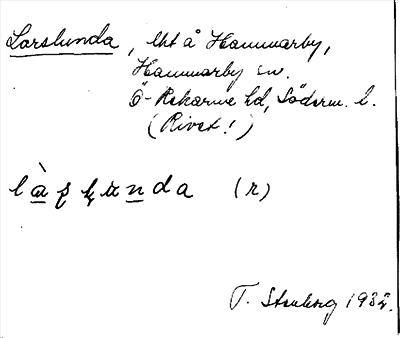 Larslunda, lht å Hammarby,
Hammarby sn.
Ö-Rekarne hd, Söderm. l.
(Rivet!)
(r)
T. Stenberg 1932.